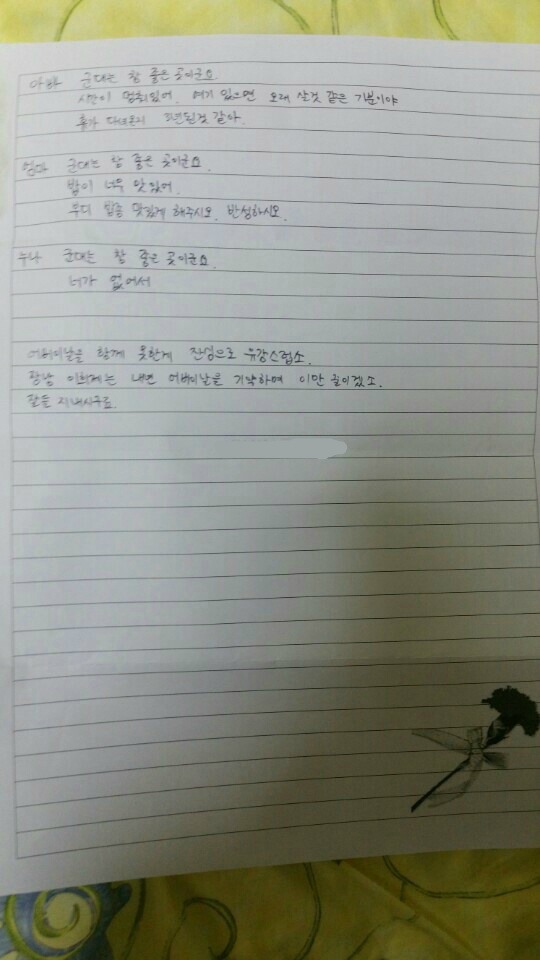 아빠 군대는 참 좋은 곳이군요.
시간이 멈춰있어. 여기 있으면 오래 살것 같은 기분이야
휴가 다녀온지 2년된것 같아.
엄마 군대는 참 좋은 곳이군요.
밥이 너무 맛있어.
부디 밥좀 맛있게 해주시오. 반성하시오.
누나 군대는 참 좋은 곳이군요
너가 없어서
어버이날을 함께 못한게 진심으로 유감스럽소.
장남 이희제는 내년 어버이날을 기약하며 이만 줄이겠소.
잘들 지내시구료.